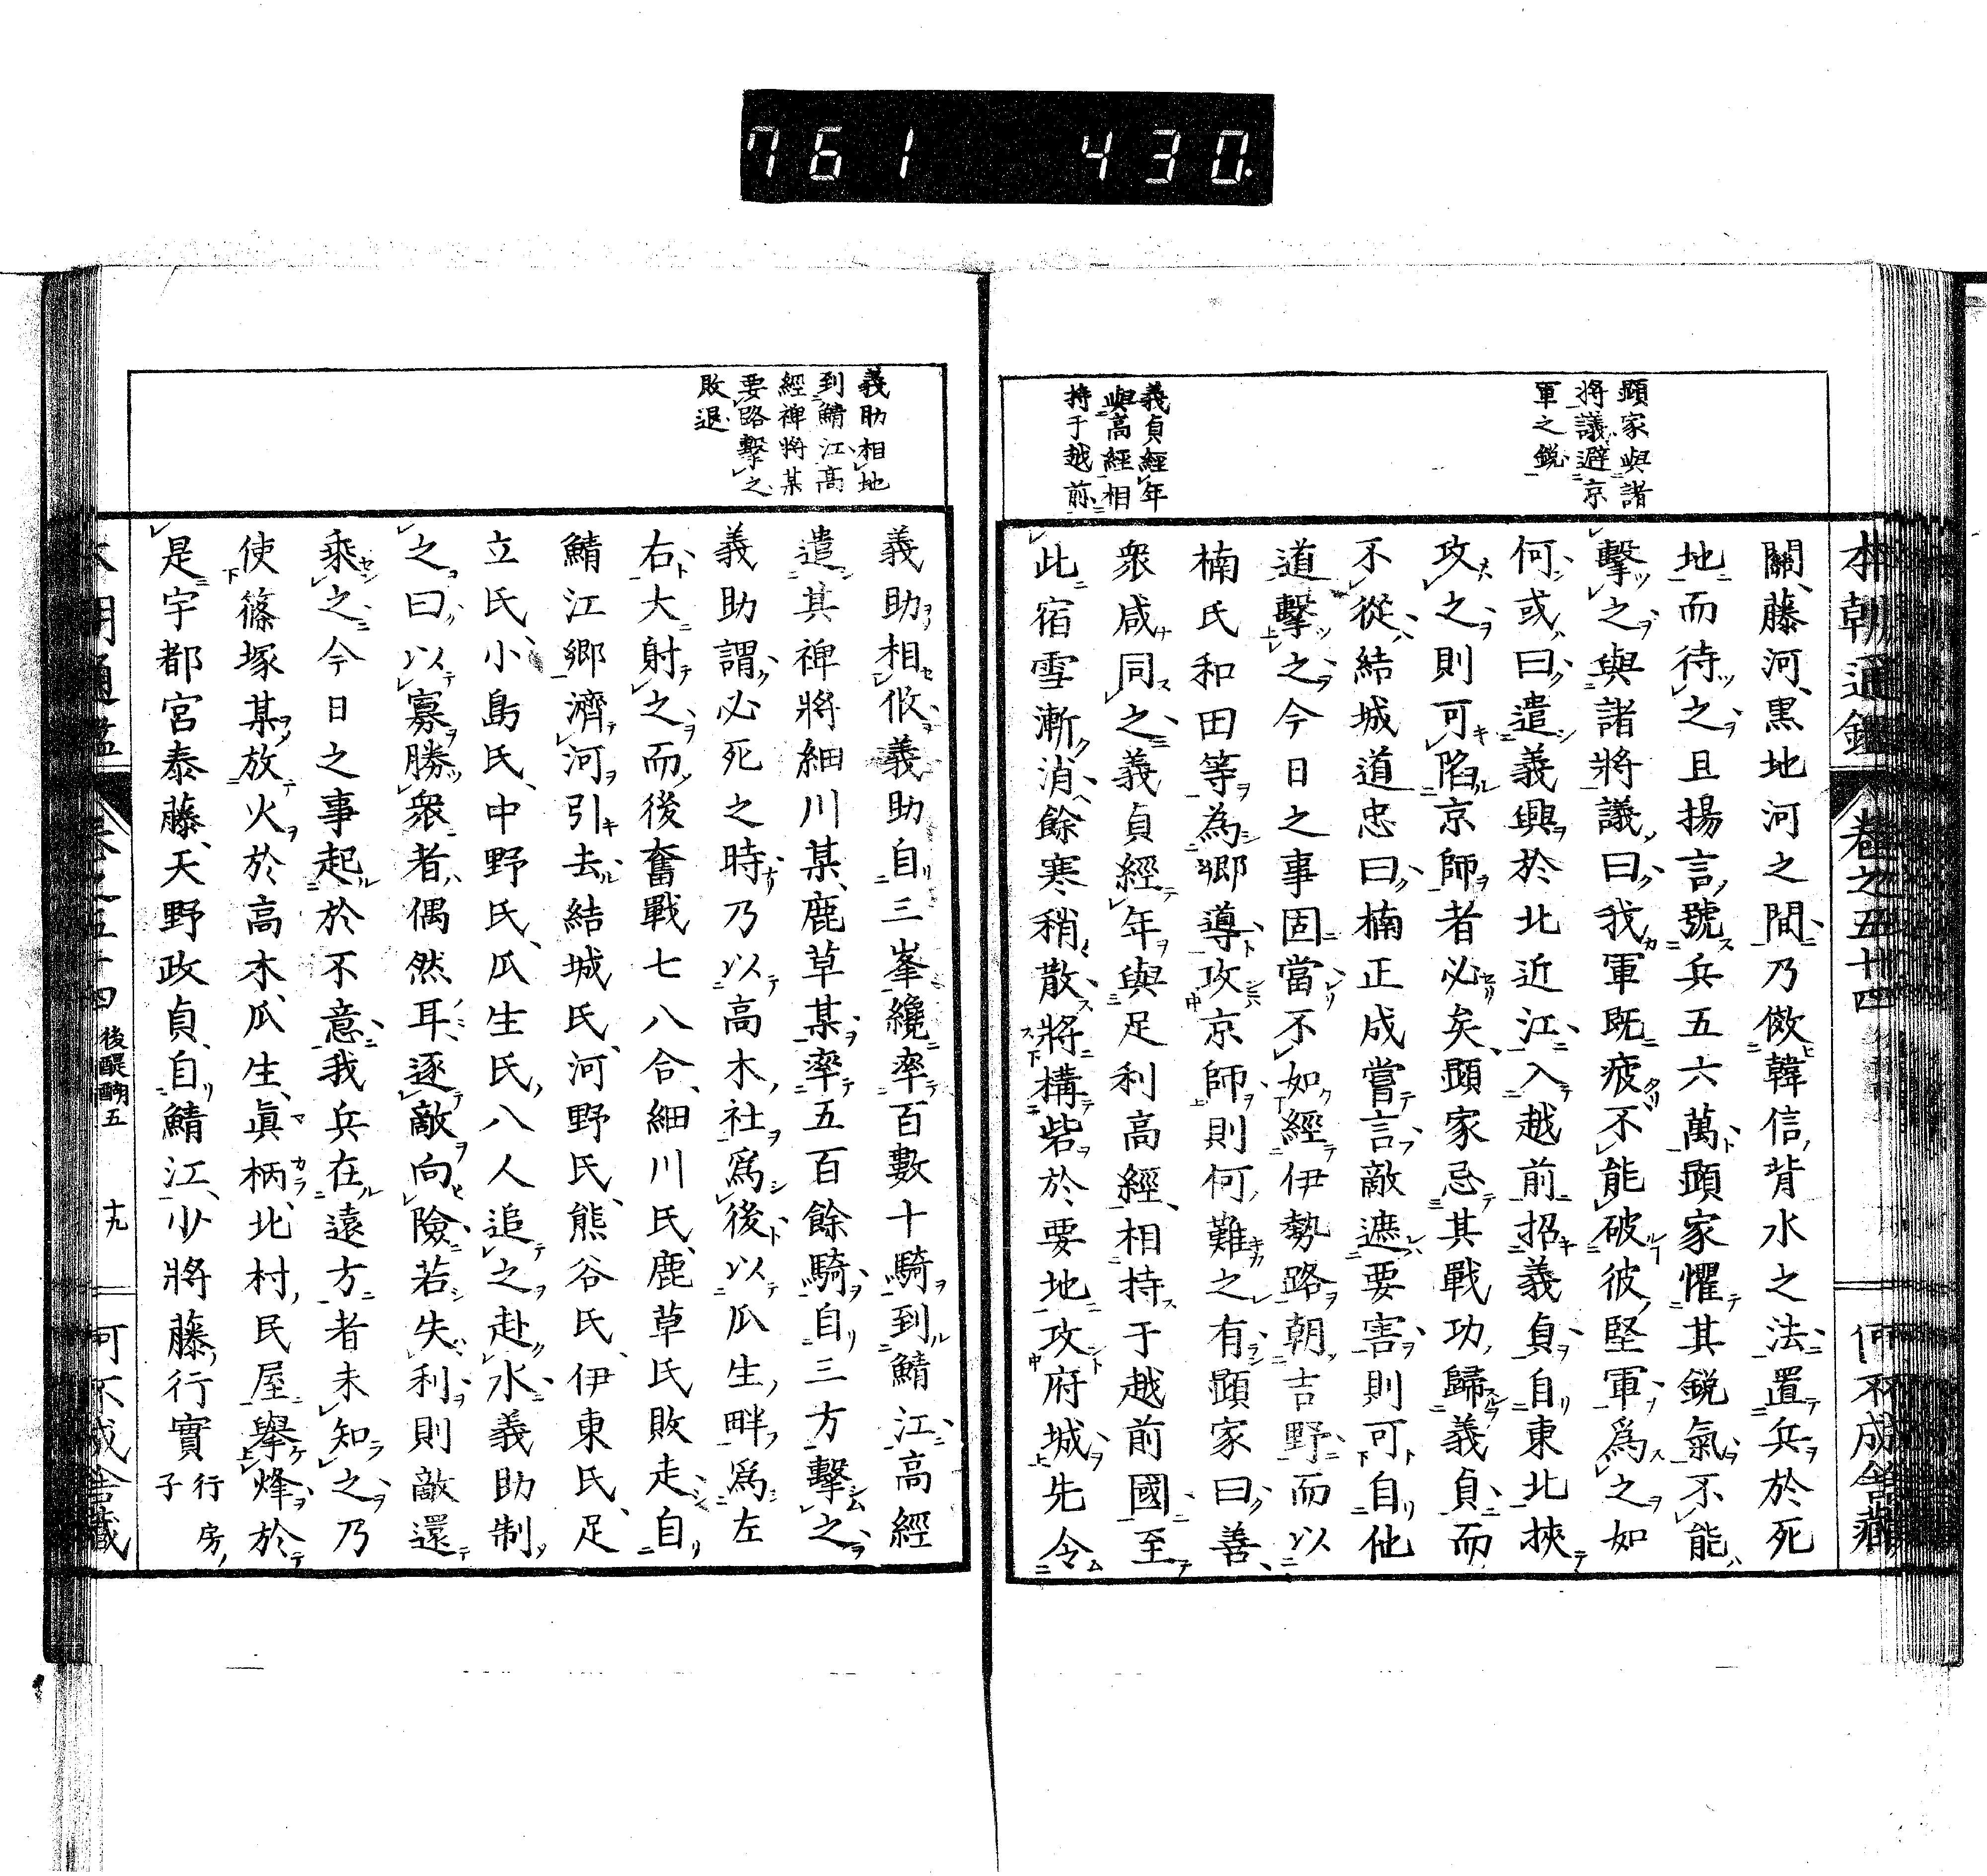 761 430.
本朝通鑑 卷之五十四
何不成舍藏
顕家與諸
將議避京
軍之鋭
義貞經年
與高經相
持于越前
關藤河黒地河之間乃倣韓信背水之法置兵於死
地而待之且揚言號兵五六萬顕家懼其鋭氣不能
擊之與諸將議曰我軍既疲不能破彼堅軍爲之如
何或曰遣義興於北近江入越前招義貞自東北挾
攻之則可陷京師者必矣顕家忌其戰功歸義貞而
不從結城道忠曰楠正成嘗言敵遮要害則可自他
道擊之今日之事固當不如經伊勢路朝吉野而以
楠氏和田等為郷導攻京師則何難之有顕家曰善
衆咸同之義貞經年與足利高經相持于越前國至
此宿雪漸消餘寒稍散將構砦於要地攻府城先令
義助相地
到鯖江高
經裨將某
要路擊之
敗退
義助相攸義助自三峯纔率百數十騎到鯖江高經
遣其裨將細川某鹿草某率五百餘騎自三方擊之
義助謂必死之時乃以高木社爲後以瓜生畔爲左
右大射之而後奮戰七八合細川氏鹿草氏敗走自
鯖江郷濟河引去結城氏河野氏熊谷氏伊東氏足
立氏小島氏中野氏瓜生氏八人追之赴水義助制
之曰以寡勝衆者偶然耳逐敵向險若失利則敵還
乘之今日之事起於不意我兵在遠方者未知之乃
使篠塚某放火於高木瓜生眞柄北村民屋擧烽於
是宇都宮泰藤天野政貞自鯖江少將藤行實行房
子
本朝通鑑 卷之五十四 後醍醐五 十九
何不成舍藏